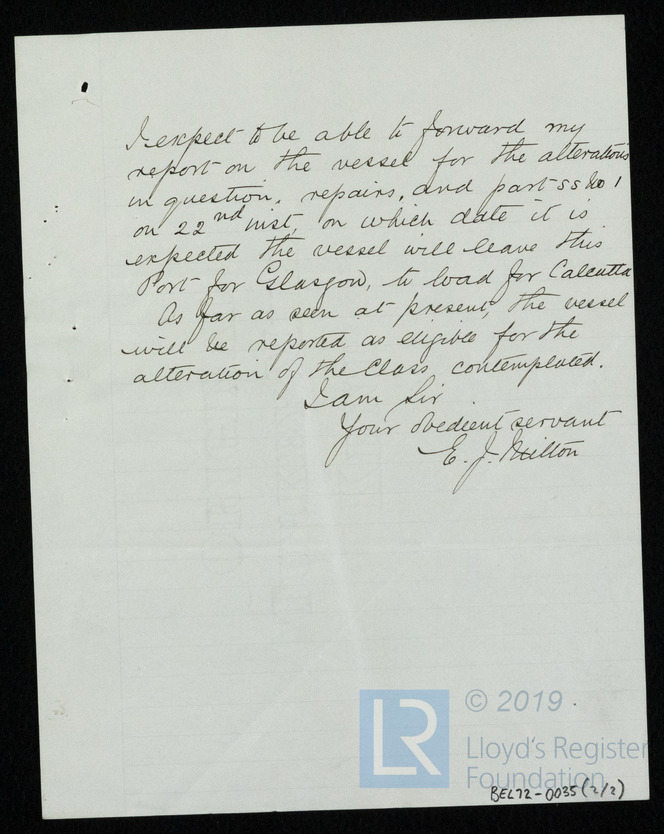 I expect to be able to forward my
report on the vessel for the alterations
in question, repairs, and part SS No 1
on 22nd inst, on which date it is
expected the vessel will leave this
Port for Glasgow, to load for Calcutta
As far as seen at present, the vessel
will be reported as eligible for the
alteration of the Class contemplated.
I am Sir
Your obedient servant
E. J. Milton
LR
© 2019
Lloyd's Register
Foundation
BEL72-0035 (2/2)